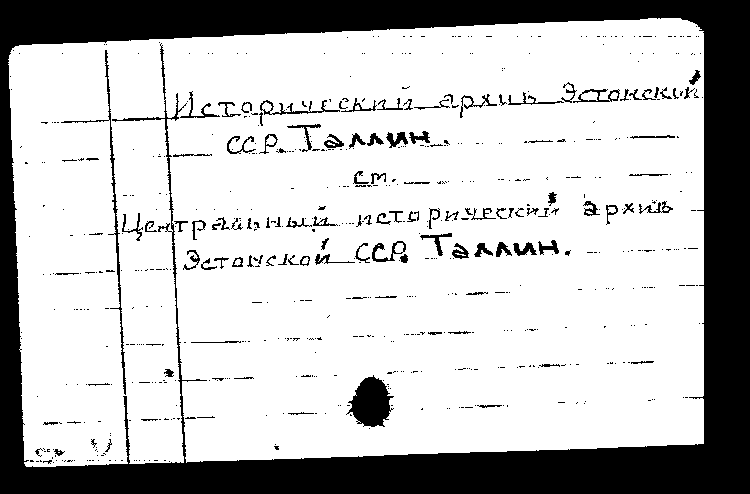 Исторический архив Эстонский
ССР. Таллин.
см.
Центральный исторический архив
Эстонской ССР. Таллин.